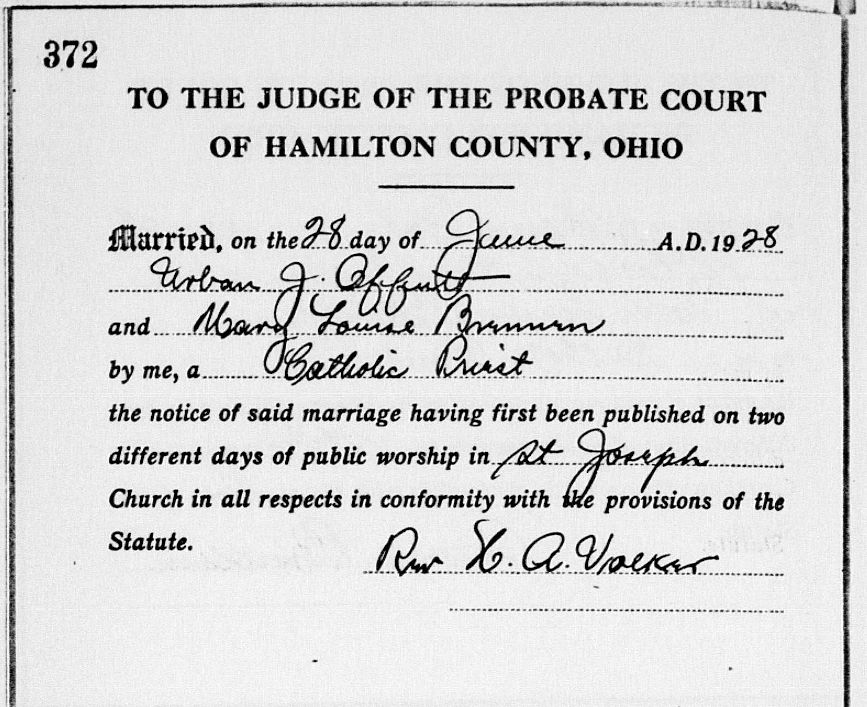 372
TO THE JUDGE OF THE PROBATE COURT
OF HAMILTON COUNTY, OHIO
Married, on the 28 day of June A.D. 1928
Urban J. Offutt
and Mary Louise Brennen
by me, a Catholic Priest
the notice of said marriage having first been published on two
different days of public worship in St Joseph
Church in all respects in conformity with the provisions of the
Statute.
Rev H. A. Volker